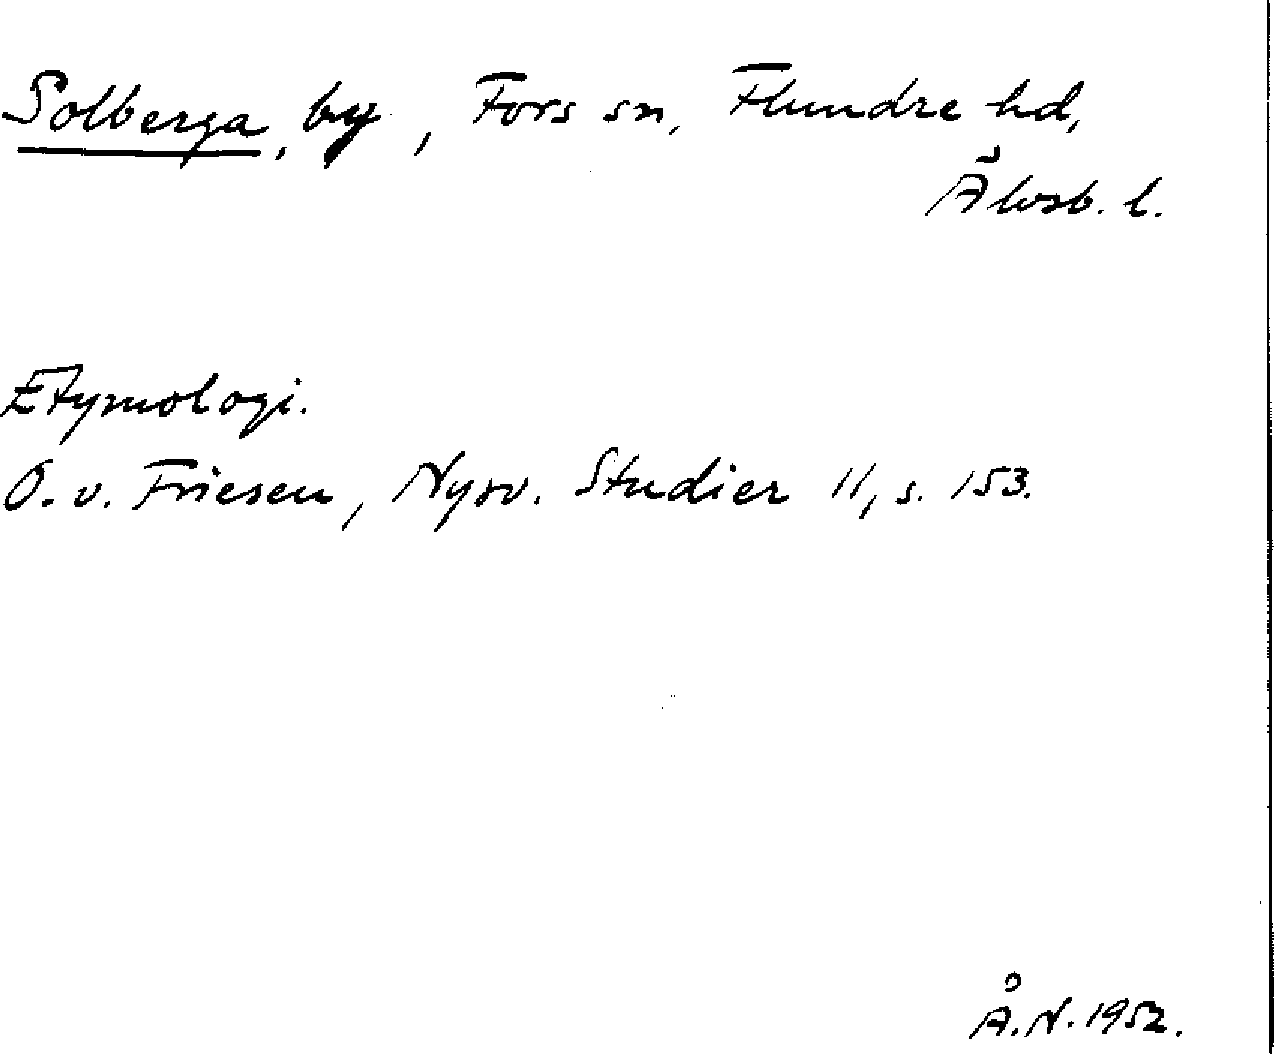 Solberga, by, Fors sn, Flundre hd,
Älvsb. l.
Etymologi.
O. v. Friesen, Nysv. Studier 11, s. 153.
Å. N. 1952.